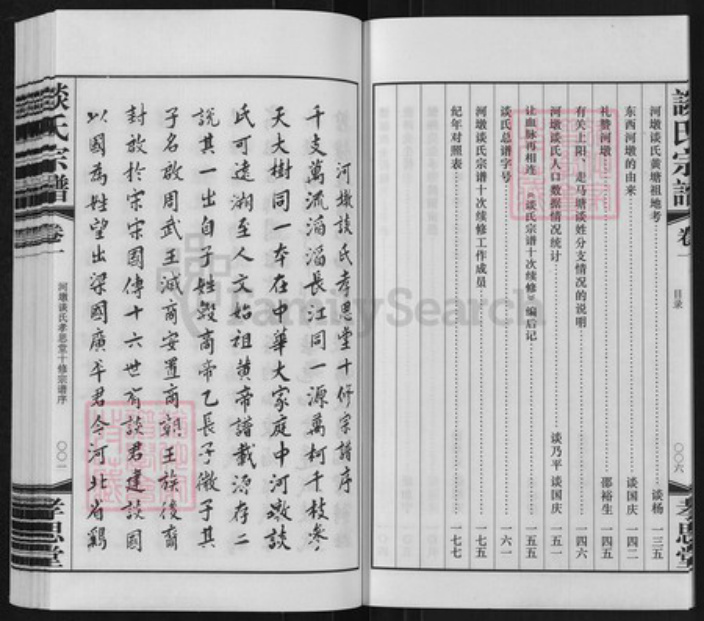 談氏宗譜
卷一
目录
〇〇六
孝思堂
河墩谈氏黄塘祖地考……谈杨 一三五
东西河墩的由来……谈国庆 一四二
礼赞河墩……邵裕生 一四五
有关上阳、走马塘谈姓分支情况的说明……一四六
河墩谈氏人口数据情况统计……谈乃平 谈国庆 一五一
让血脉再相连……《谈氏宗谱十次续修》编后记……一五五
谈氏总谱字号……一六一
河墩谈氏宗谱十次续修工作成员……一七五
纪年对照表……一七七
河墩談氏孝思堂十修宗譜序
千支萬流滔滔長江同一源萬柯千枝參
天大樹同一本在中華大家庭中河墩談
氏可遠溯至人文始祖黄帝譜載源存二
說其一出自子姓殷商帝乙長子微子其
子名啟周武王滅商安置商朝王族後裔
封啟於宋宋國傳十六世有談君建談國
以國為姓望出梁國廣平君今河北省鷄
談氏宗譜
卷一
河墩谈氏孝思堂十修宗谱序
〇〇一
孝思堂
FamilySearch